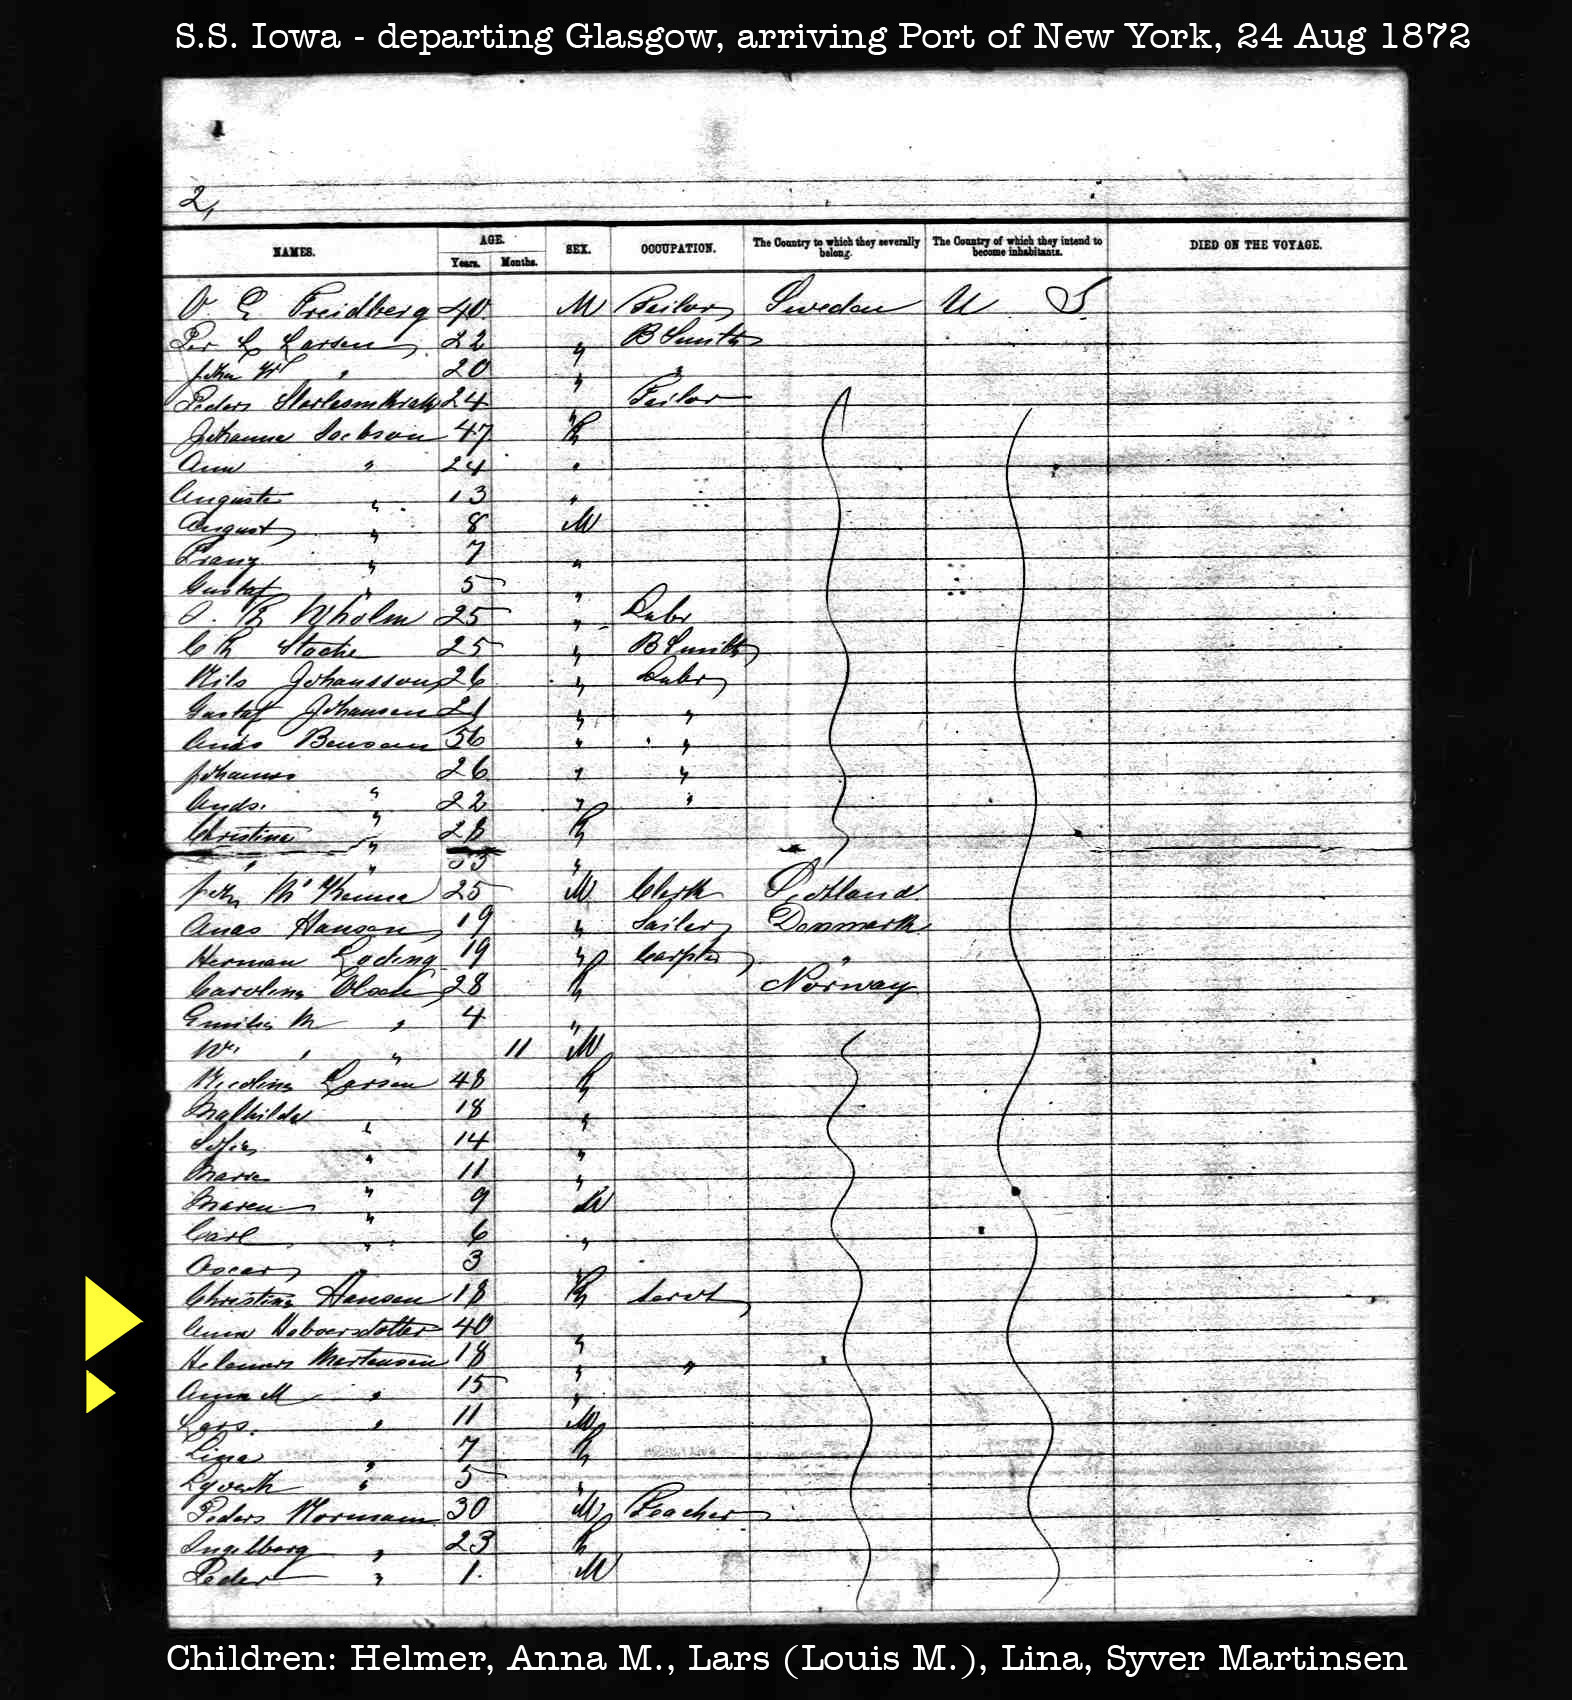 S.S. Iowa - departing Glasgow, arriving Port of New York, 24 Aug 1872
2,
NAMES. AGE. SEX. OCCUPATION. The Country to which they severally belong. The Country of which they intend to become inhabitants. DIED ON THE VOYAGE.
Years. Months.
Freidberg 40 M Tailor Sweden U S
Per Larsen 22 " B Smith
John " 20 " "
Peders 24 " Tailor
Johanna 47
Ann " 24 "
Auguste " 13 "
August " 8 M
Franz " 7 "
Gustaf " 5 "
Nyholm 25 " Labr
25 " B Smith
Nils Johansson 26 " Labr
Gustaf Johansen 21 " "
Ands Benson 56 " "
Johannes " 26 " "
Ands. " 22 " "
Christina " 28
" " 33 "
John McKenna 25 M Clerk Scotland
Hansen 19 " Sailor Denmark
Herman 19 " Carptr "
Carolina Olsen 28 Norway
Emilie M " 4 "
" " 11 M
Larsen 48
Mathilde " 18 "
Sofia " 14 "
Marie " 11 "
Maren " 9 M
Carl " 6 "
Oscar " 3 "
Christina Hansen 18 Servt
Anna 40 "
Martensen 18 " "
Anna M " 15 "
Lars. " 11 M
Lina " 7
" 5 "
Peders Normann 30 M Teacher
Ingelborg " 23
Peder " 1. M
Children: Helmer, Anna M., Lars (Louis M.), Lina, Syver Martinsen